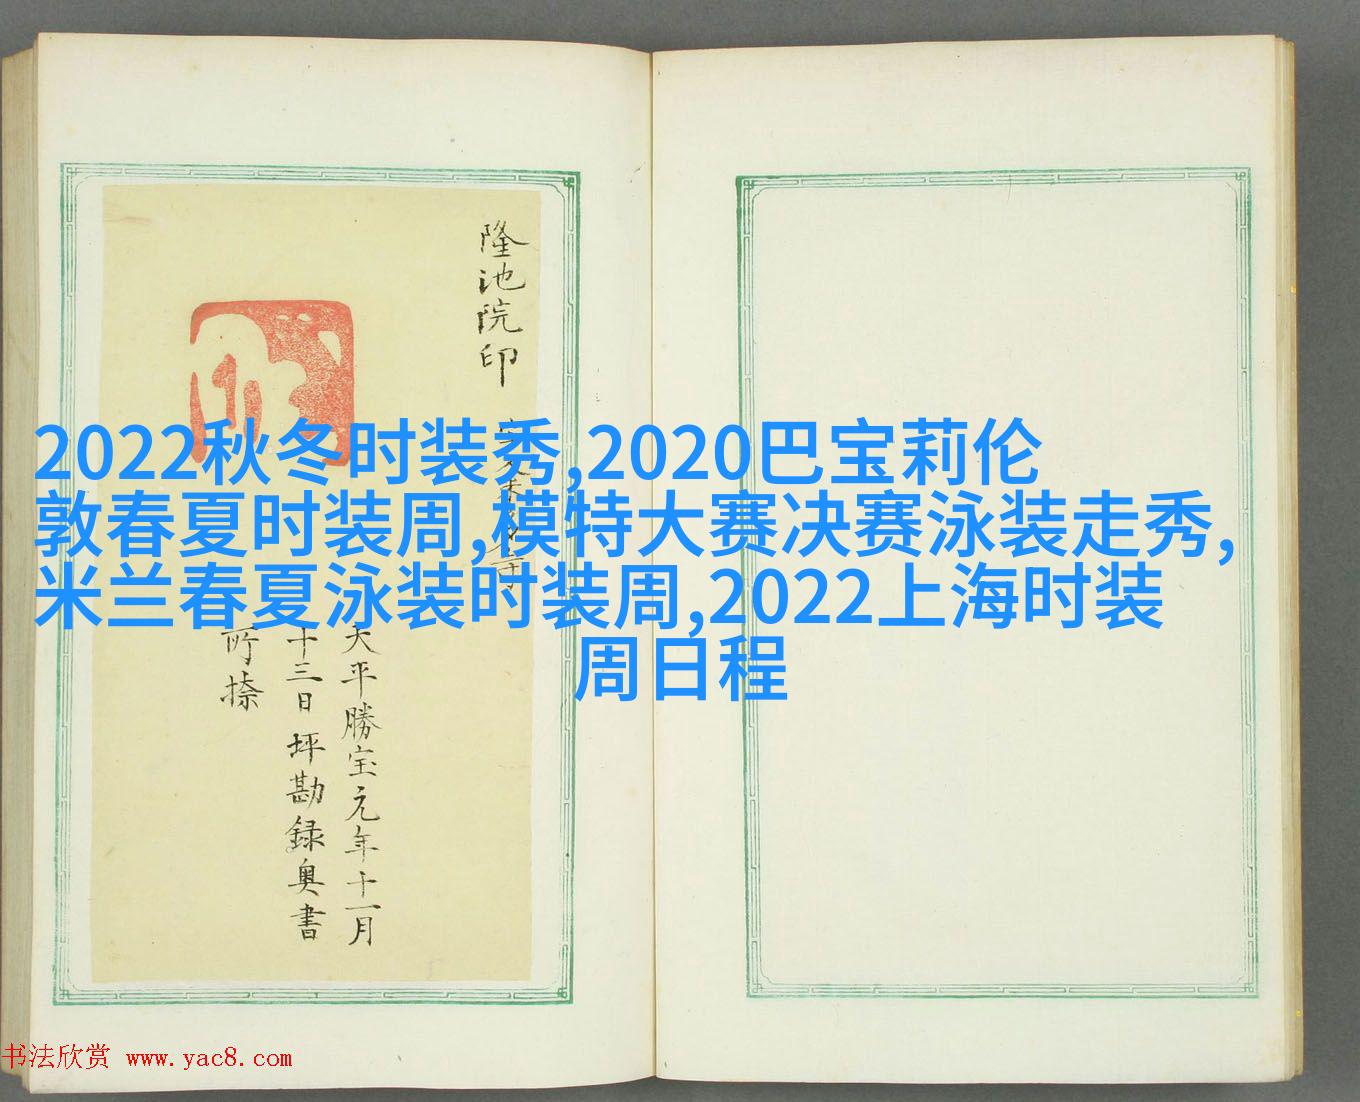 隆池院印
2022秋冬时装秀,2020巴宝莉伦
敦春夏时装周,模特大赛决赛泳装走秀,
米兰春夏泳装时装周,2022上海时装
周日程
天平勝宝元年十一月
十三日坪勘録奥書
所捺
书法欣赏 www.yac8.com